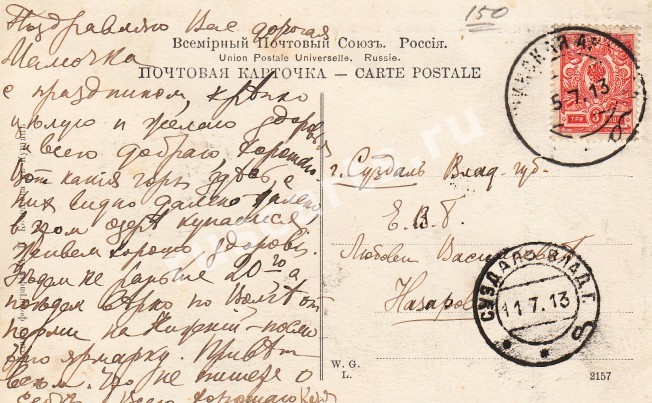 150
Всемірный Почтовый Союзъ. Россія.
Union Postale Universelle. Russie.
ПОЧТОВАЯ КАРТОЧКА — CARTE POSTALE
Поздравляю Вас дорогая
Мамочка
с праздником крѣпко
цѣлую и желаю здоровья
и всего добраго
Вот какія горы здѣсь с
них видно далеко далеко
в этом озерѣ купаемся
Живем хорошо здоровы.
Ѣдем не раньше 20го а
поѣдем вѣрно по Волгѣ от
Перми на Нижний посмо
ярмарку. Привѣт
всем. Что не пишете о
себѣ. Всего хорошаго Катя
г. Суздаль Влад. губ.
Е. В. Б.
Любови Васильевнѣ
Назаров
5.7.13
ТРИ 3 КОП
СУЗДАЛЬ ВЛАД. Г.
11.7.13
W. G.
L.
2157